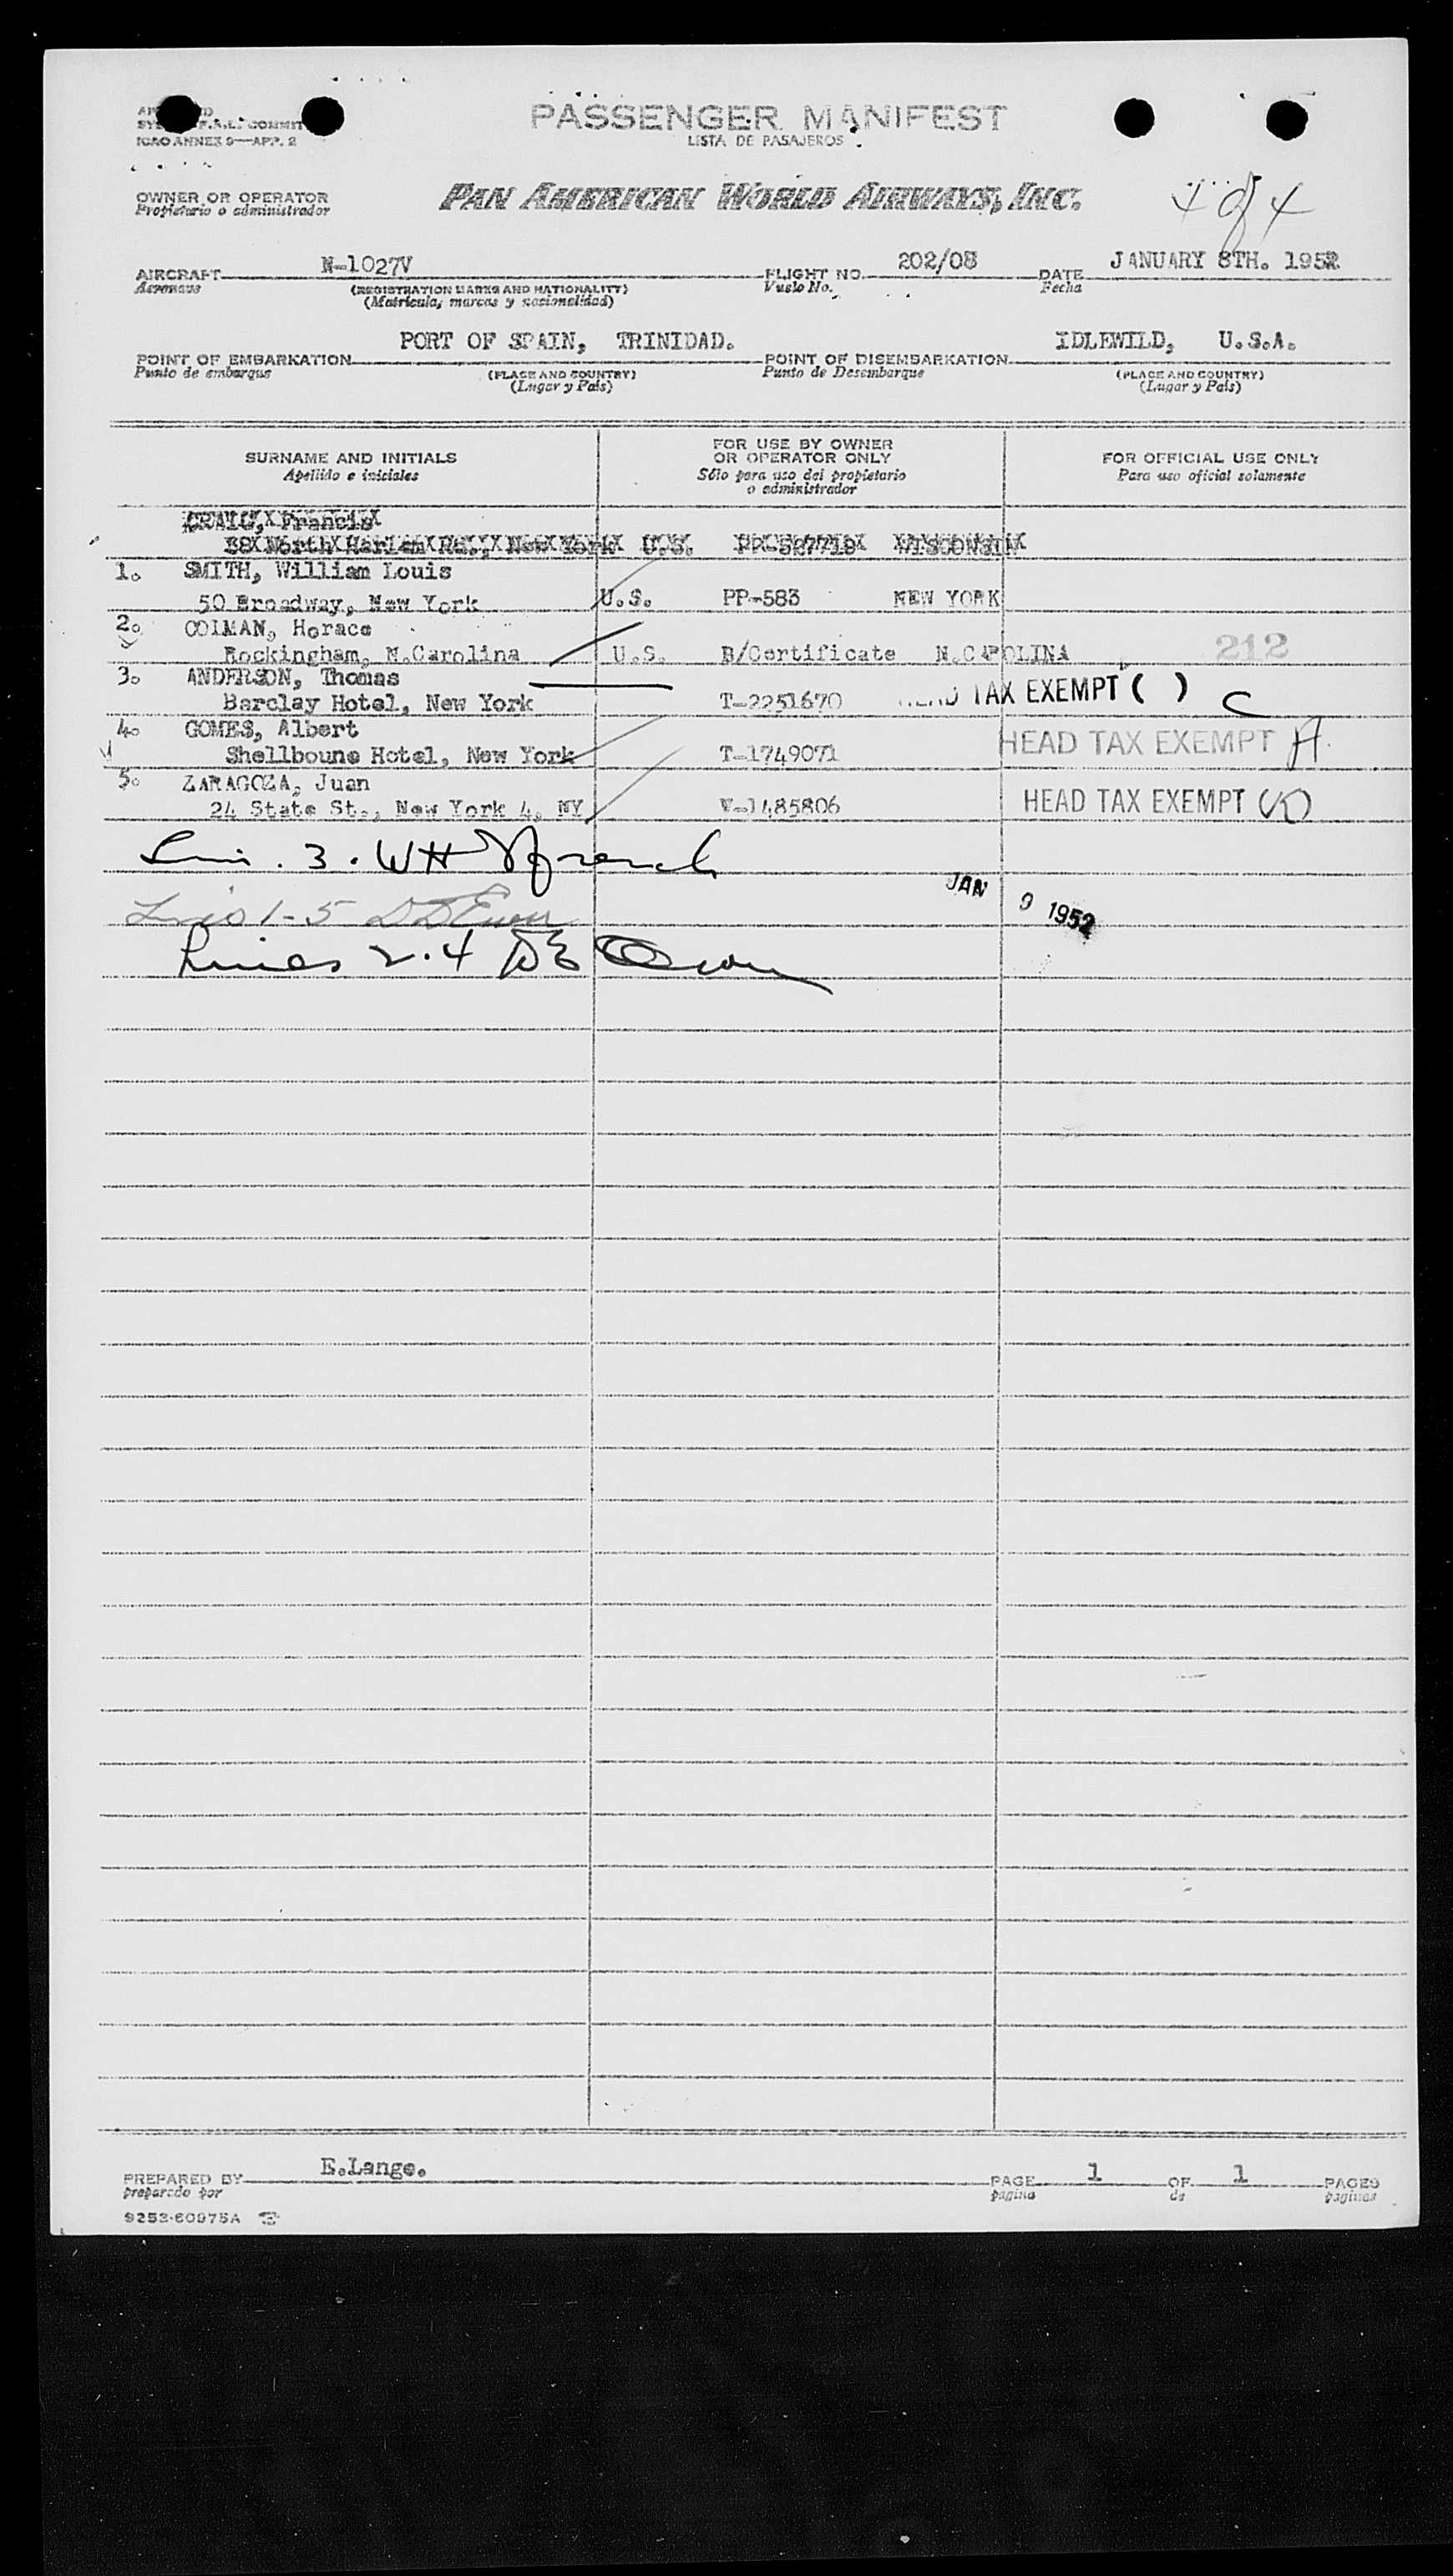 PASSENGER MANIFEST
LISTA DE PASAJEROS
ICAO ANNEX 9—APP. 2
OWNER OR OPERATOR
Propietario o administrador
PAN AMERICAN WORLD AIRWAYS, INC.
4 of 4
AIRCRAFT N-1027V FLIGHT NO. 202/08 DATE JANUARY 8TH. 1952
Aeronave (REGISTRATION MARKS AND NATIONALITY) Vuelo No. Fecha
(Matrícula, marcas y nacionalidad)
POINT OF EMBARKATION PORT OF SPAIN, TRINIDAD. POINT OF DISEMBARKATION IDLEWILD, U.S.A.
Punto de embarque (PLACE AND COUNTRY) Punto de Desembarque (PLACE AND COUNTRY)
(Lugar y País) (Lugar y País)
SURNAME AND INITIALS FOR USE BY OWNER OR OPERATOR ONLY FOR OFFICIAL USE ONLY
Apellido e iniciales Sólo para uso del propietario o administrador Para uso oficial solamente
CRAIG, Francis
38 North Harlem Rd., New York U.S. PP-527719 WISCONSIN
1. SMITH, William Louis
50 Broadway, New York U.S. PP-583 NEW YORK
2. COLMAN, Horace
Rockingham, N.Carolina U.S. B/Certificate N.CAROLINA 212
3. ANDERSON, Thomas
Barclay Hotel, New York T-2251670 HEAD TAX EXEMPT ( ) C
4. GOMES, Albert
Shellboune Hotel, New York T-1749071 HEAD TAX EXEMPT A
5. ZARAGOZA, Juan
24 State St., New York 4, NY V-1485806 HEAD TAX EXEMPT
3. WH French
JAN 9 1952
1-5
Lines 2.4
PREPARED BY E.Lange. PAGE 1 OF 1 PAGES
preparado por página de páginas
9252-60975A